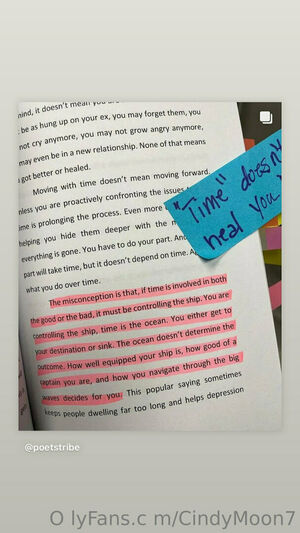 mind, it doesn't mean you are
be as hung up on your ex, you may forget them, you
not cry anymore, you may not grow angry anymore,
may even be in a new relationship. None of that means
got better or healed.
Moving with time doesn't mean moving forward.
nless you are proactively confronting the issues
ime is prolonging the process. Even more
helping you hide them deeper with the
everything is gone. You have to do your part. And
part will take time, but it doesn't depend on time.
what you do over time.
"Time" doesn't
heal you
The misconception is that, if time is involved in both
the good or the bad, it must be controlling the ship. You are
controlling the ship, time is the ocean. You either get to
your destination or sink. The ocean doesn't determine the
outcome. How well equipped your ship is, how good of a
captain you are, and how you navigate through the big
waves decides for you. This popular saying sometimes
keeps people dwelling far too long and helps depression
@poetstribe
O lyFans.c m/CindyMoon7